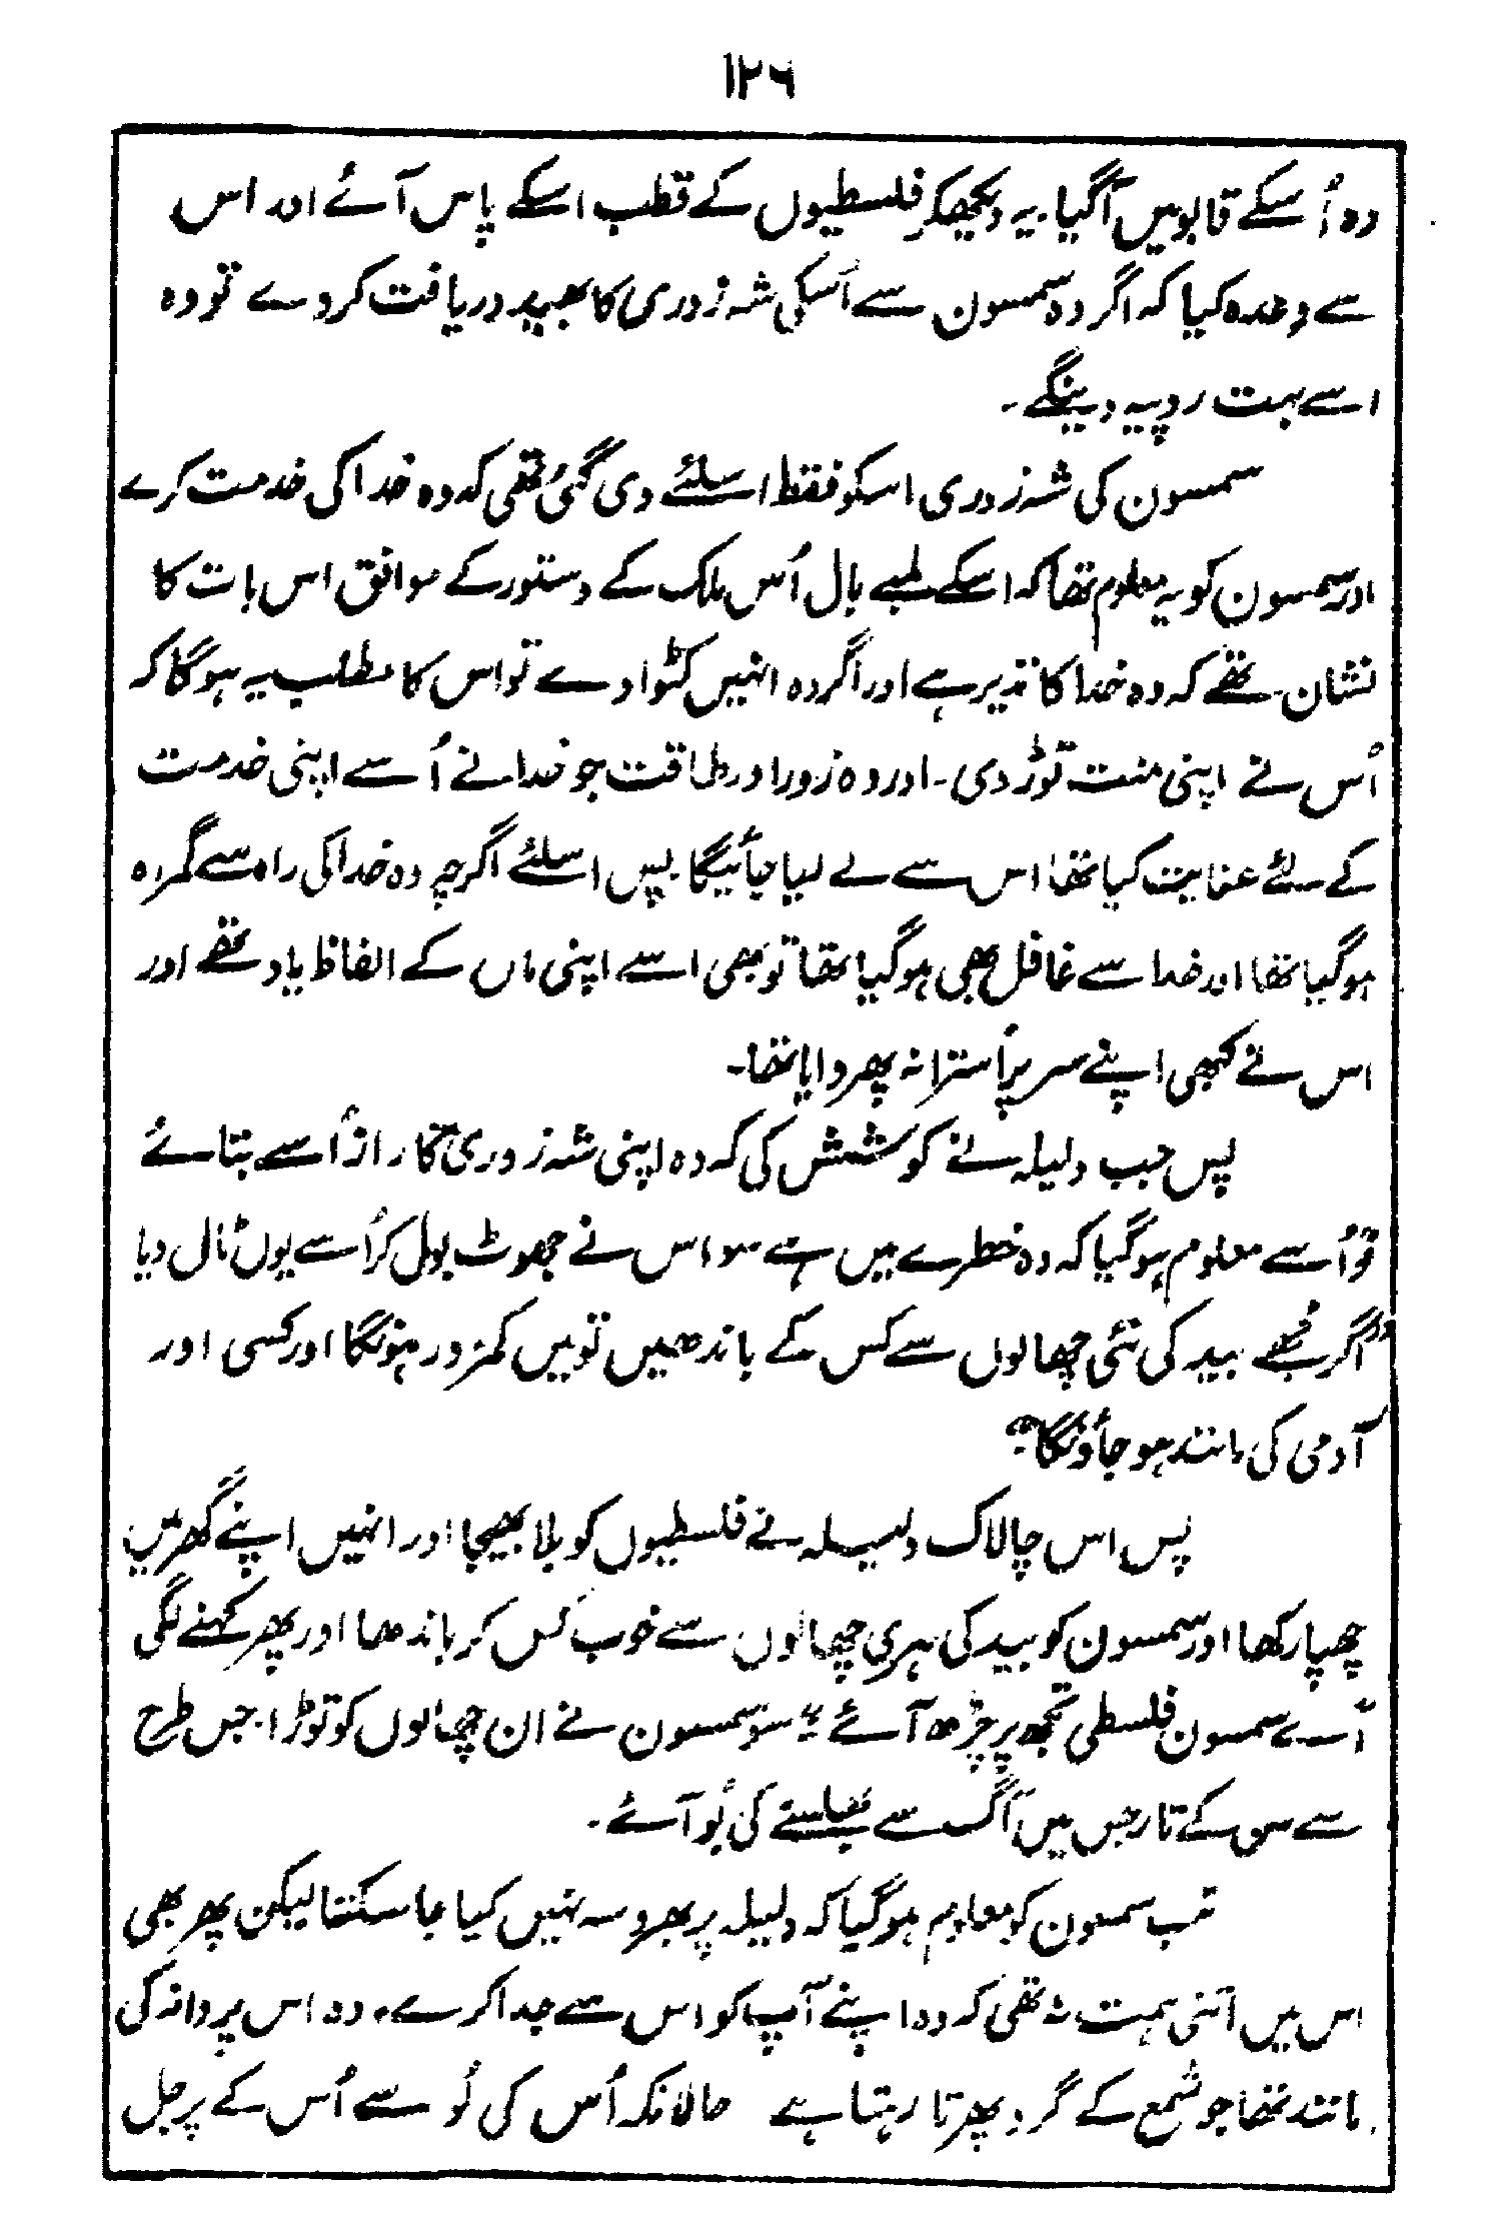 ۱۲۶
وہ اُسکے قابو میں آگیا۔ یہ دیکھکر فلسطیوں کے قطب اسکے پاس آئے اور اس
سے وعدہ کیا کہ اگر وہ سمسون سے اُسکی شہ زوری کا بھید دریافت کر دے تو وہ
اسے بہت روپیہ دینگے۔
سمسون کی شہ زوری اسکو فقط اسلئے دی گئی تھی کہ وہ خدا کی خدمت کرے
اور سمسون کو یہ معلوم تھا کہ اسکے لمبے بال اُس ملک کے دستور کے موافق اس بات کا
نشان تھے کہ وہ خدا کا نذیر ہے اور اگر وہ انہیں کٹوا دے تو اس کا مطلب یہ ہوگا کہ
اُس نے اپنی منت توڑ دی۔ اور وہ زور اور طاقت جو خدا نے اُسے اپنی خدمت
کے لئے عنایت کیا تھا اس سے لے لیا جائیگا۔ پس اسلئے اگرچہ وہ خدا کی راہ سے گمراہ
ہوگیا تھا اور خدا سے غافل بھی ہوگیا تھا تو بھی اسے اپنی ماں کے الفاظ یاد تھے اور
اس نے کبھی اپنے سر پر اُسترا نہ پھروایا تھا۔
پس جب دلیلہ نے کوشش کی کہ وہ اپنی شہ زوری کا راز اُسے بتائے
تو اُسے معلوم ہوگیا کہ وہ خطرے میں ہے سو اس نے جھوٹ بول کر اُسے یوں ٹال دیا
”اگر مجھے بید کی نئی چھالوں سے کس کے باندھیں تو میں کمزور ہونگا اور کسی اور
آدمی کی مانند ہو جاؤنگا“
پس اس چالاک دلیلہ نے فلسطیوں کو بلا بھیجا اور انہیں اپنے گھر میں
چھپا رکھا اور سمسون کو بید کی ہری چھالوں سے خوب کس کر باندھا اور پھر کہنے لگی
”اے سمسون فلسطی تجھ پر چڑھ آئے“ سو سمسون نے ان چھالوں کو توڑا۔ جس طرح
سے سن کے تار جس میں آگ سے جھلسنے کی بُو آئے۔
تب سمسون کو معلوم ہوگیا کہ دلیلہ پر بھروسہ نہیں کیا جا سکتا لیکن پھر بھی
اس میں اتنی ہمت نہ تھی کہ وہ اپنے آپ کو اس سے جدا کرے۔ وہ اس پروانہ کی
مانند تھا جو شمع کے گرد پھرتا رہتا ہے حالانکہ اُس کی لَو سے اُس کے پر جل